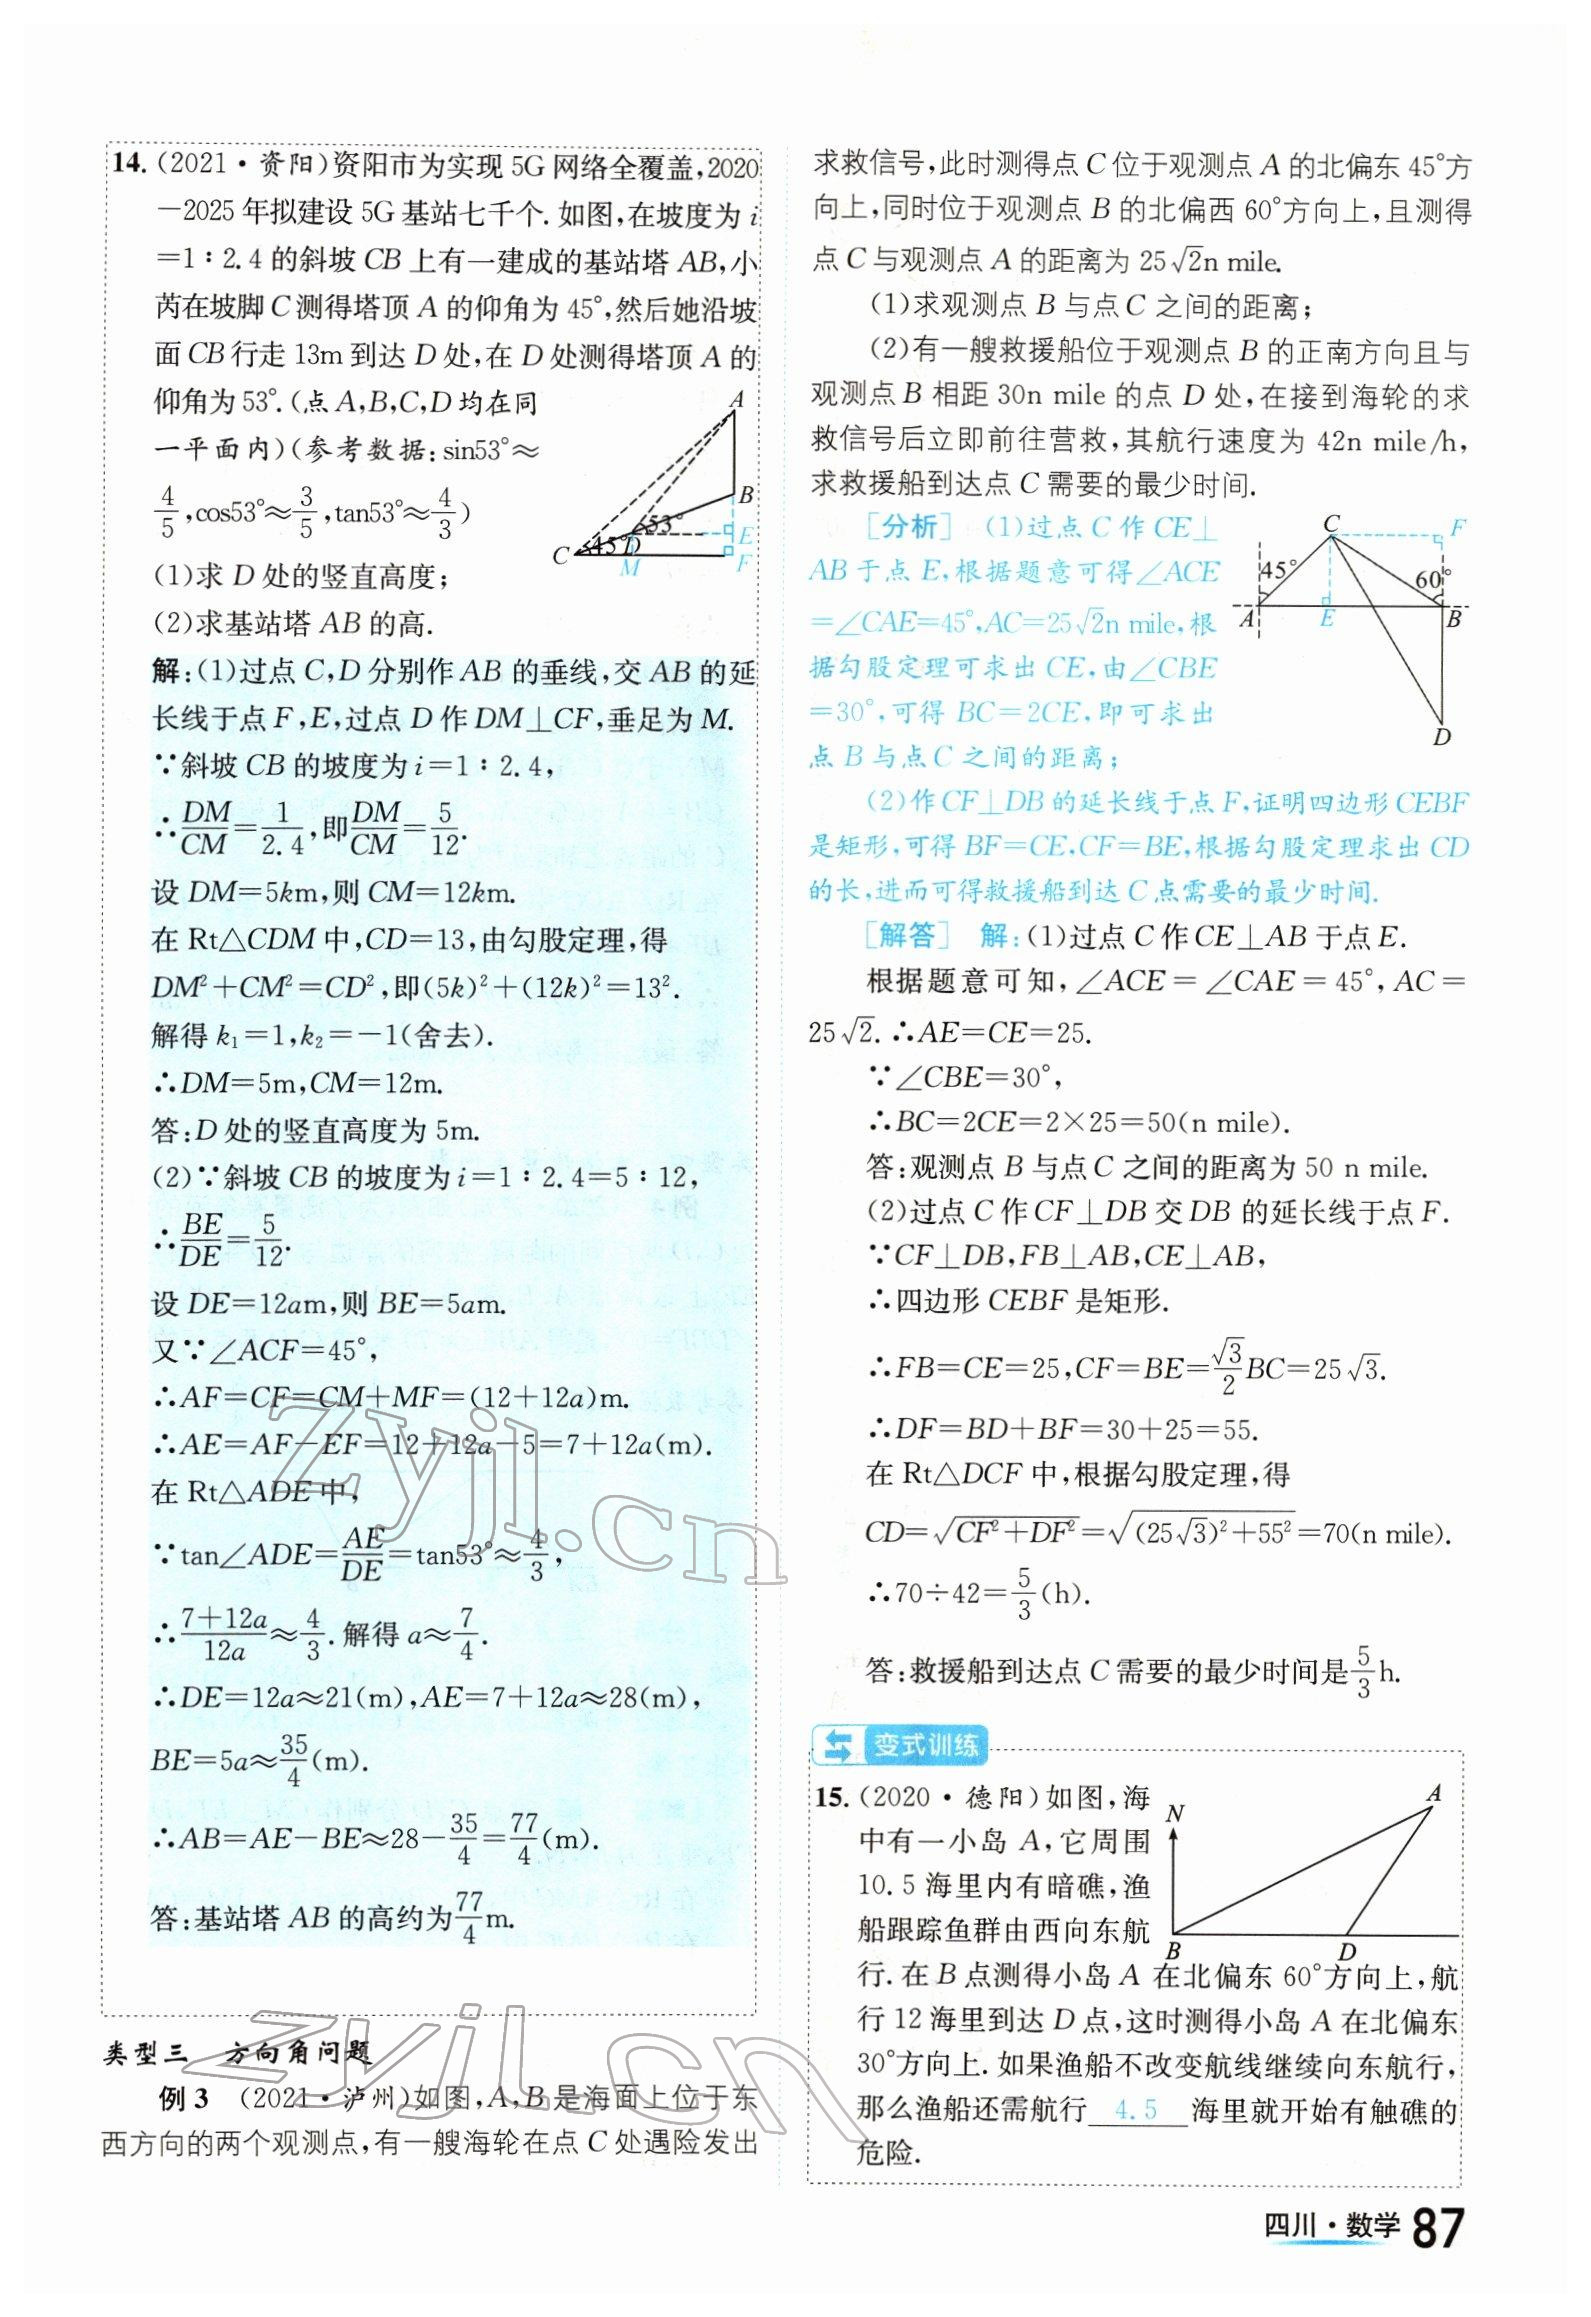 14.(2021·资阳)资阳市为实现5G网络全覆盖,2020
—2025年拟建设5G基站七千个.如图,在坡度为i
=1∶2.4的斜坡CB上有一建成的基站塔AB,小
芮在坡脚C测得塔顶A的仰角为45°,然后她沿坡
面CB行走13m到达D处,在D处测得塔顶A的
仰角为53°.(点A,B,C,D均在同
一平面内)(参考数据:sin53°≈
4/5,cos53°≈3/5,tan53°≈4/3)
A
B
53°
E
C
45°
D
M
F
(1)求D处的竖直高度;
(2)求基站塔AB的高.
解:(1)过点C,D分别作AB的垂线,交AB的延
长线于点F,E,过点D作DM⊥CF,垂足为M.
∵斜坡CB的坡度为i=1∶2.4,
∴DM/CM=1/2.4,即DM/CM=5/12.
设DM=5km,则CM=12km.
在Rt△CDM中,CD=13,由勾股定理,得
DM²+CM²=CD²,即(5k)²+(12k)²=13².
解得k₁=1,k₂=-1(舍去).
∴DM=5m,CM=12m.
答:D处的竖直高度为5m.
(2)∵斜坡CB的坡度为i=1∶2.4=5∶12,
∴BE/DE=5/12.
设DE=12am,则BE=5am.
又∵∠ACF=45°,
∴AF=CF=CM+MF=(12+12a)m.
∴AE=AF-EF=12+12a-5=7+12a(m).
在Rt△ADE中,
∵tan∠ADE=AE/DE=tan53°≈4/3,
∴(7+12a)/12a≈4/3.解得a≈7/4.
∴DE=12a≈21(m),AE=7+12a≈28(m),
BE=5a≈35/4(m).
∴AB=AE-BE≈28-35/4=77/4(m).
答:基站塔AB的高约为77/4m.
类型三 方向角问题
例3 (2021·泸州)如图,A,B是海面上位于东
西方向的两个观测点,有一艘海轮在点C处遇险发出
求救信号,此时测得点C位于观测点A的北偏东45°方
向上,同时位于观测点B的北偏西60°方向上,且测得
点C与观测点A的距离为25√2n mile.
(1)求观测点B与点C之间的距离;
(2)有一艘救援船位于观测点B的正南方向且与
观测点B相距30n mile的点D处,在接到海轮的求
救信号后立即前往营救,其航行速度为42n mile/h,
求救援船到达点C需要的最少时间.
[分析] (1)过点C作CE⊥
AB于点E,根据题意可得∠ACE
=∠CAE=45°,AC=25√2n mile,根
据勾股定理可求出CE,由∠CBE
=30°,可得BC=2CE,即可求出
点B与点C之间的距离;
C
F
45°
60°
A
E
B
D
(2)作CF⊥DB的延长线于点F,证明四边形CEBF
是矩形,可得BF=CE,CF=BE,根据勾股定理求出CD
的长,进而可得救援船到达C点需要的最少时间.
[解答] 解:(1)过点C作CE⊥AB于点E.
根据题意可知,∠ACE=∠CAE=45°,AC=
25√2.∴AE=CE=25.
∵∠CBE=30°,
∴BC=2CE=2×25=50(n mile).
答:观测点B与点C之间的距离为50 n mile.
(2)过点C作CF⊥DB交DB的延长线于点F.
∵CF⊥DB,FB⊥AB,CE⊥AB,
∴四边形CEBF是矩形.
∴FB=CE=25,CF=BE=√3/2BC=25√3.
∴DF=BD+BF=30+25=55.
在Rt△DCF中,根据勾股定理,得
CD=√(CF²+DF²)=√((25√3)²+55²)=70(n mile).
∴70÷42=5/3(h).
答:救援船到达点C需要的最少时间是5/3h.
变式训练
15.(2020·德阳)如图,海
中有一小岛A,它周围
10.5海里内有暗礁,渔
船跟踪鱼群由西向东航
N
A
B
D
行.在B点测得小岛A在北偏东60°方向上,航
行12海里到达D点,这时测得小岛A在北偏东
30°方向上.如果渔船不改变航线继续向东航行,
那么渔船还需航行 4.5 海里就开始有触礁的
危险.
四川·数学 87
zyjl.cn
zyjl.cn